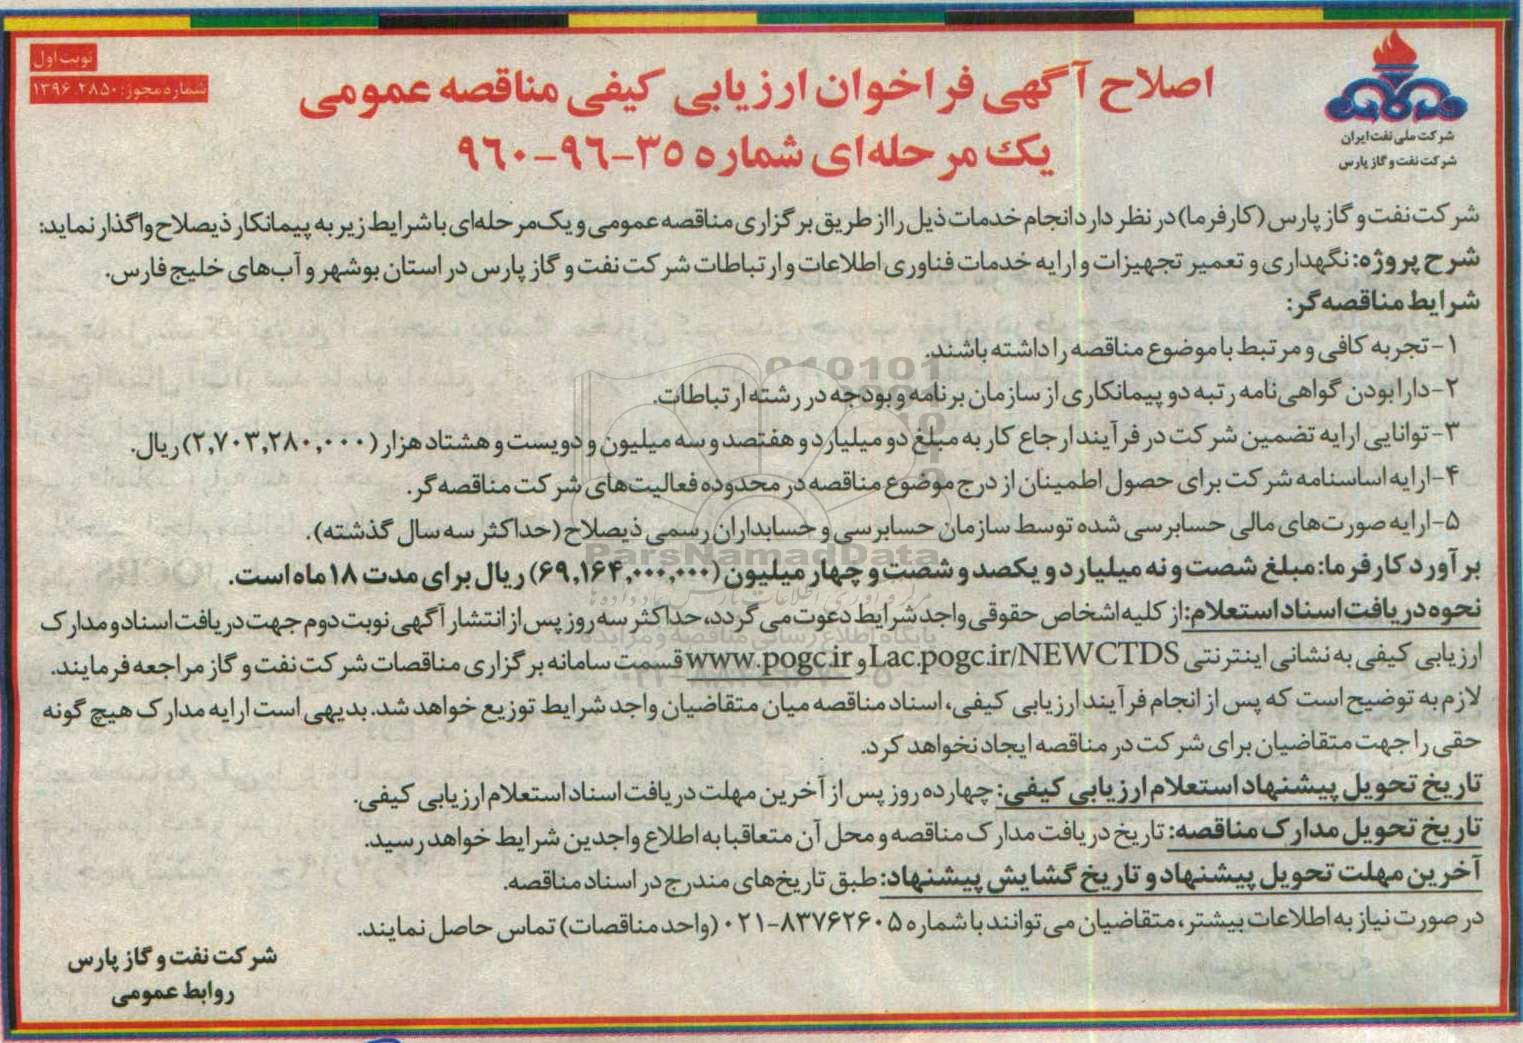 نوبت اول
شماره مجوز: ۱۳۹۶.۲۸۵۰
شرکت ملی نفت ایران
شرکت نفت و گاز پارس
اصلاح آگهی فراخوان ارزیابی کیفی مناقصه عمومی
یک مرحله‌ای شماره ۳۵-۹۶-۹۶۰
شرکت نفت و گاز پارس (کارفرما) در نظر دارد انجام خدمات ذیل را از طریق برگزاری مناقصه عمومی و یک‌مرحله‌ای با شرایط زیر به پیمانکار ذیصلاح واگذار نماید:
شرح پروژه: نگهداری و تعمیر تجهیزات و ارایه خدمات فناوری اطلاعات و ارتباطات شرکت نفت و گاز پارس در استان بوشهر و آب‌های خلیج فارس.
شرایط مناقصه‌گر:
۱- تجربه کافی و مرتبط با موضوع مناقصه را داشته باشند.
۲- دارا بودن گواهی‌نامه رتبه دو پیمانکاری از سازمان برنامه و بودجه در رشته ارتباطات.
۳- توانایی ارایه تضمین شرکت در فرآیند ارجاع کار به مبلغ دو میلیارد و هفتصد و سه میلیون و دویست و هشتاد هزار (۲,۷۰۳,۲۸۰,۰۰۰) ریال.
۴- ارایه اساسنامه شرکت برای حصول اطمینان از درج موضوع مناقصه در محدوده فعالیت‌های شرکت مناقصه‌گر.
۵- ارایه صورت‌های مالی حسابرسی شده توسط سازمان حسابرسی و حسابداران رسمی ذیصلاح (حداکثر سه سال گذشته).
برآورد کارفرما: مبلغ شصت و نه میلیارد و یکصد و شصت و چهار میلیون (۶۹,۱۶۴,۰۰۰,۰۰۰) ریال برای مدت ۱۸ ماه است.
نحوه دریافت اسناد استعلام: از کلیه اشخاص حقوقی واجد شرایط دعوت می گردد، حداکثر سه روز پس از انتشار آگهی نوبت دوم جهت دریافت اسناد و مدارک
ارزیابی کیفی به نشانی اینترنتی Lac.pogc.ir/NEWCTDS و www.pogc.ir قسمت سامانه برگزاری مناقصات شرکت نفت و گاز مراجعه فرمایند.
لازم به توضیح است که پس از انجام فرآیند ارزیابی کیفی، اسناد مناقصه میان متقاضیان واجد شرایط توزیع خواهد شد. بدیهی است ارایه مدارک هیچ گونه
حقی را جهت متقاضیان برای شرکت در مناقصه ایجاد نخواهد کرد.
تاریخ تحویل پیشنهاد استعلام ارزیابی کیفی: چهارده روز پس از آخرین مهلت دریافت اسناد استعلام ارزیابی کیفی.
تاریخ تحویل مدارک مناقصه: تاریخ دریافت مدارک مناقصه و محل آن متعاقبا به اطلاع واجدین شرایط خواهد رسید.
آخرین مهلت تحویل پیشنهاد و تاریخ گشایش پیشنهاد: طبق تاریخ‌های مندرج در اسناد مناقصه.
در صورت نیاز به اطلاعات بیشتر، متقاضیان می‌توانند با شماره ۸۳۷۶۲۶۰۵-۰۲۱ (واحد مناقصات) تماس حاصل نمایند.
شرکت نفت و گاز پارس
روابط عمومی
ParsNamadData